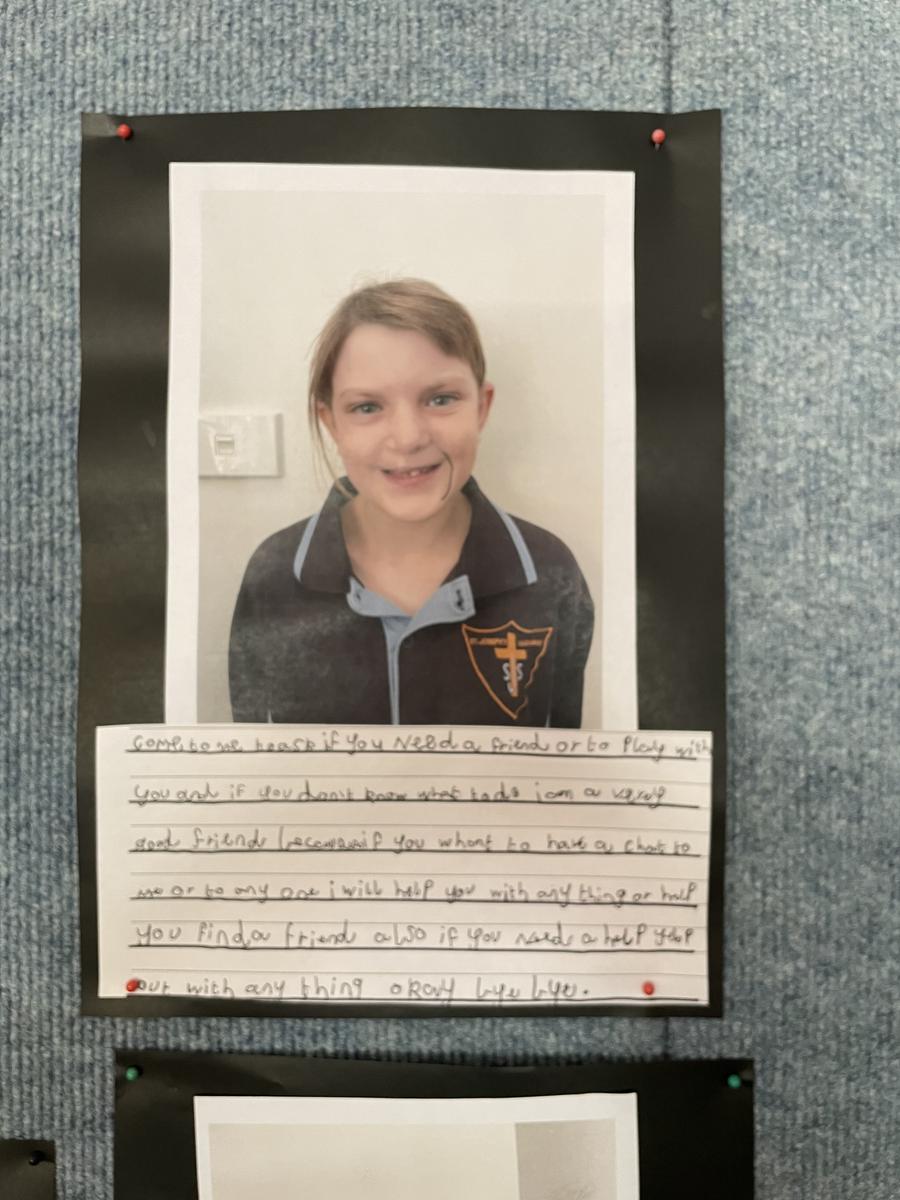 ST. JOSEPH'S
come to me to ask if you Need a friend or to Play with
you and if you don't know what to do i am a very
good friend if you whant to have a chat to
me or to any one i will help you with any thing or help
you find a friend also if you need a help
out with any thing okay bye bye.